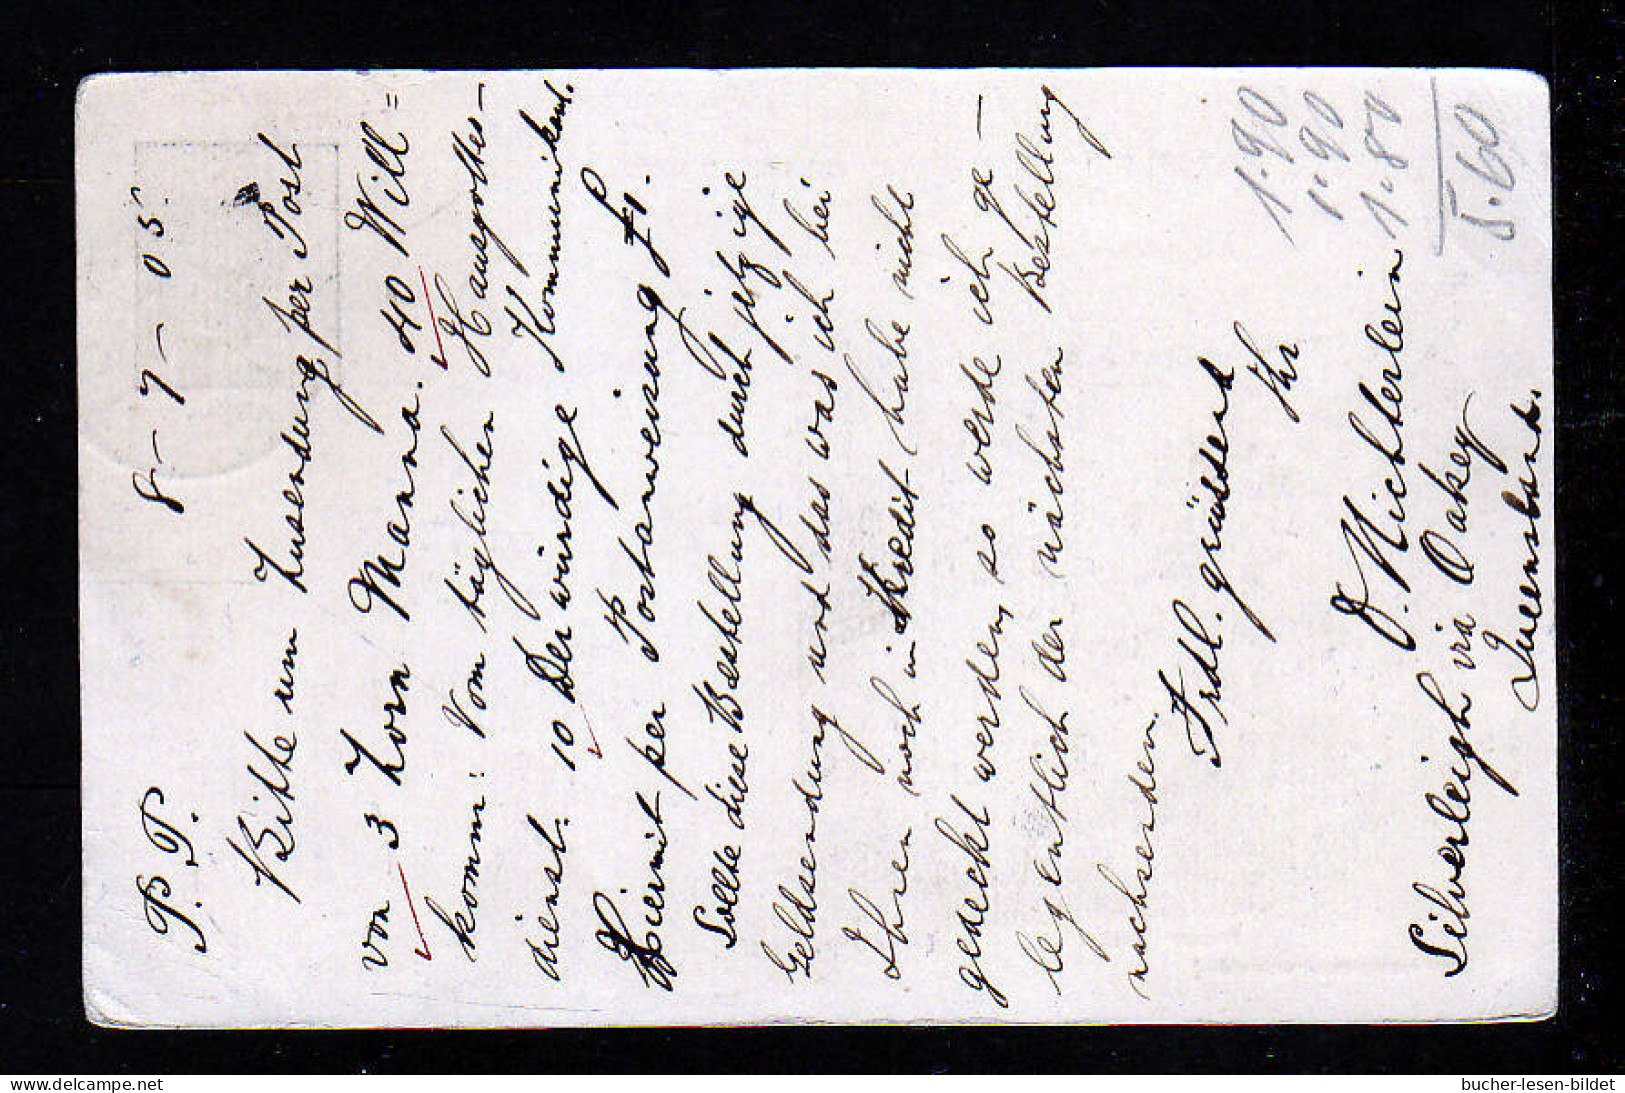 P. P.
8 – 7 – 05.
Bitte um Zusendung per Post
von 3 Zorn Manna. 40 Will=
komm: Vom täglichen Hausgottes–
dienst. 10 Der würdige Kommunikant.
Hiermit per Postanweisung £1.
Sollte diese Bestellung durch jetzige
Geldsendung und das was ich bei
Ihnen noch in Kredit habe nicht
gedeckt werden, so werde ich ge–
legentlich der nächsten Bestellung
nachsenden.
Frdl. grüssend
Ihr
O. Nichterlein
Silverleigh via Oakey
Queensland.
1.90
1.90
1.80
5.60
delcampe.net
bucher-lesen-bildet